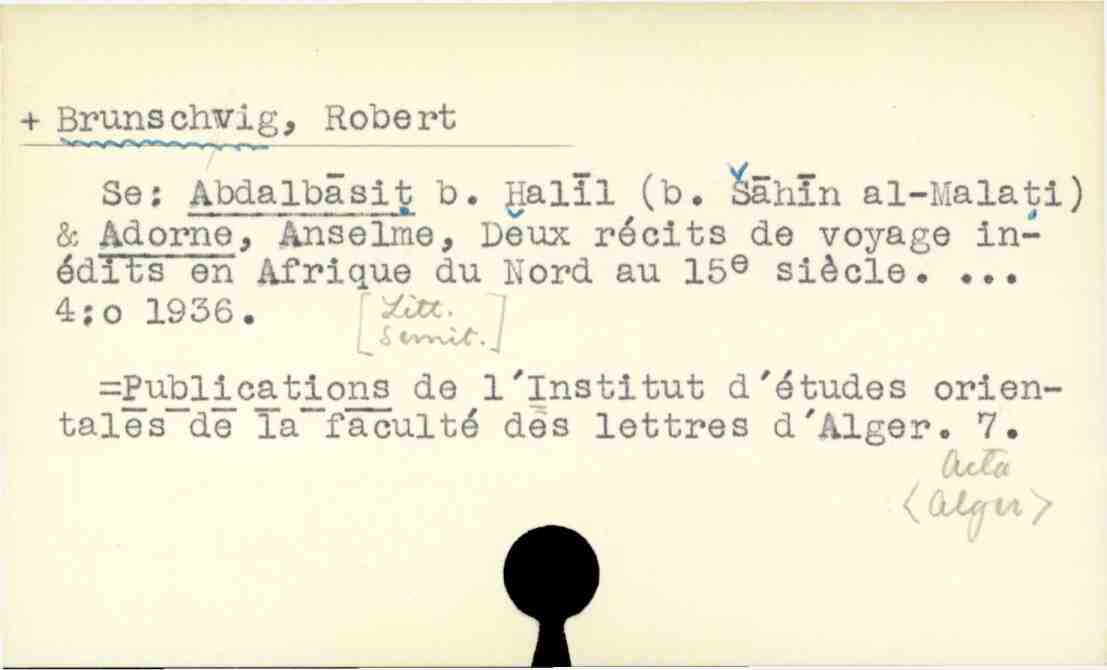 + Brunschvig, Robert
Se: Abdalbāsiṭ b. Ḫalīl (b. Šāhīn al-Malaṭi)
& Adorne, Anselme, Deux récits de voyage in-
édits en Afrique du Nord au 15e siècle. ...
4:o 1936.
[Litt.
Semit.]
=Publications de l'Institut d'études orien-
tales de la faculté des lettres d'Alger. 7.
Acta
<Alger>